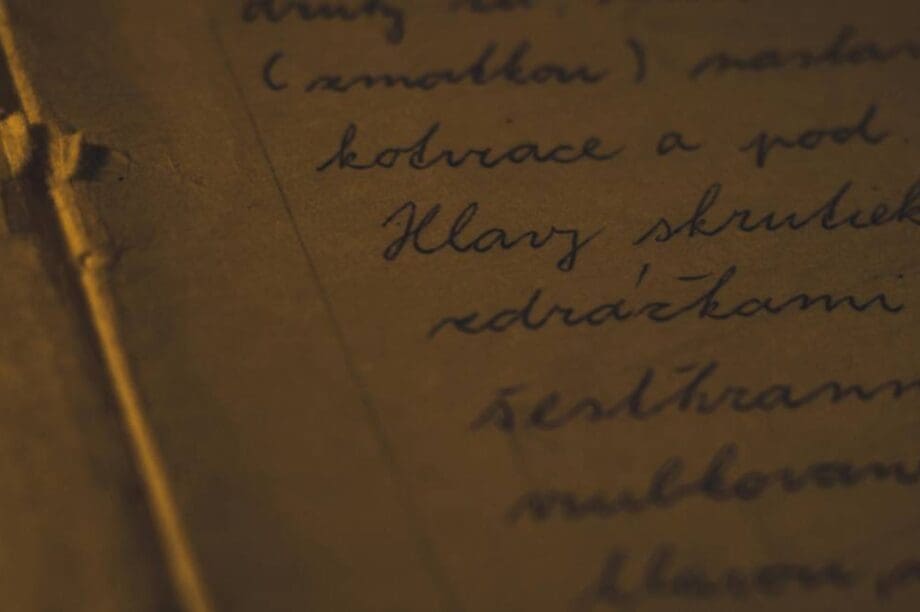 (zmatkou)
kotvrace a pod
Hlavy skrutiek
zdrážkami
šesťhrann
vrubkovan
hlavou